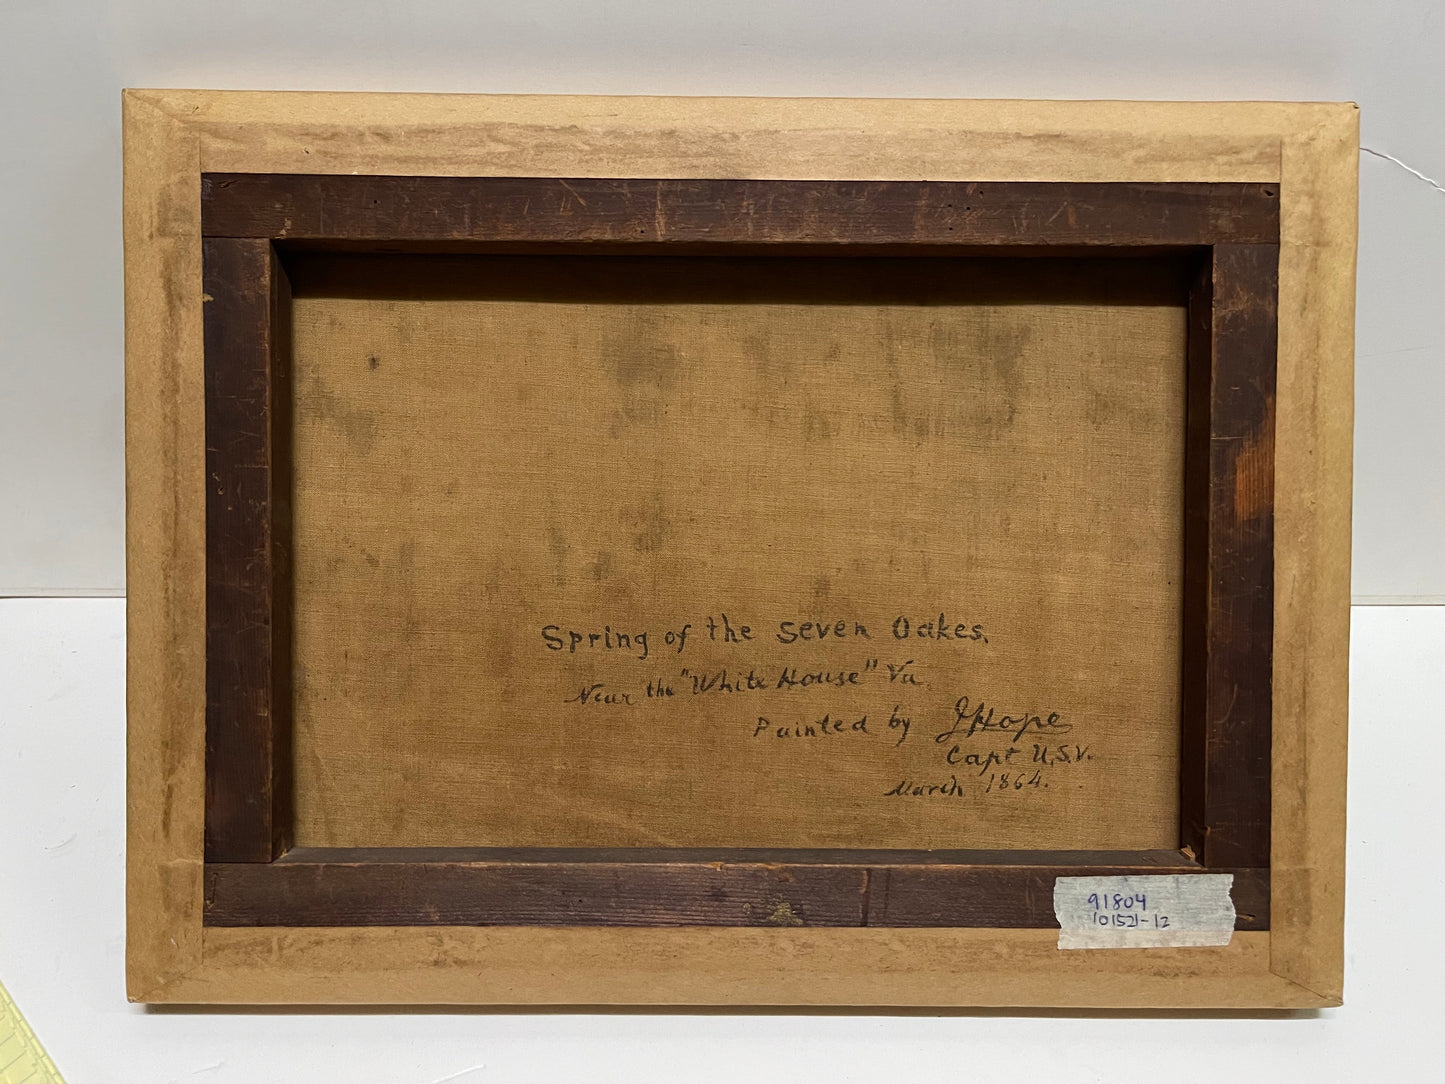 Spring of the Seven Oakes,
Near the "White House" Va.
Painted by JHope
Capt U.S.V.
March 1864.
91804
101521-12